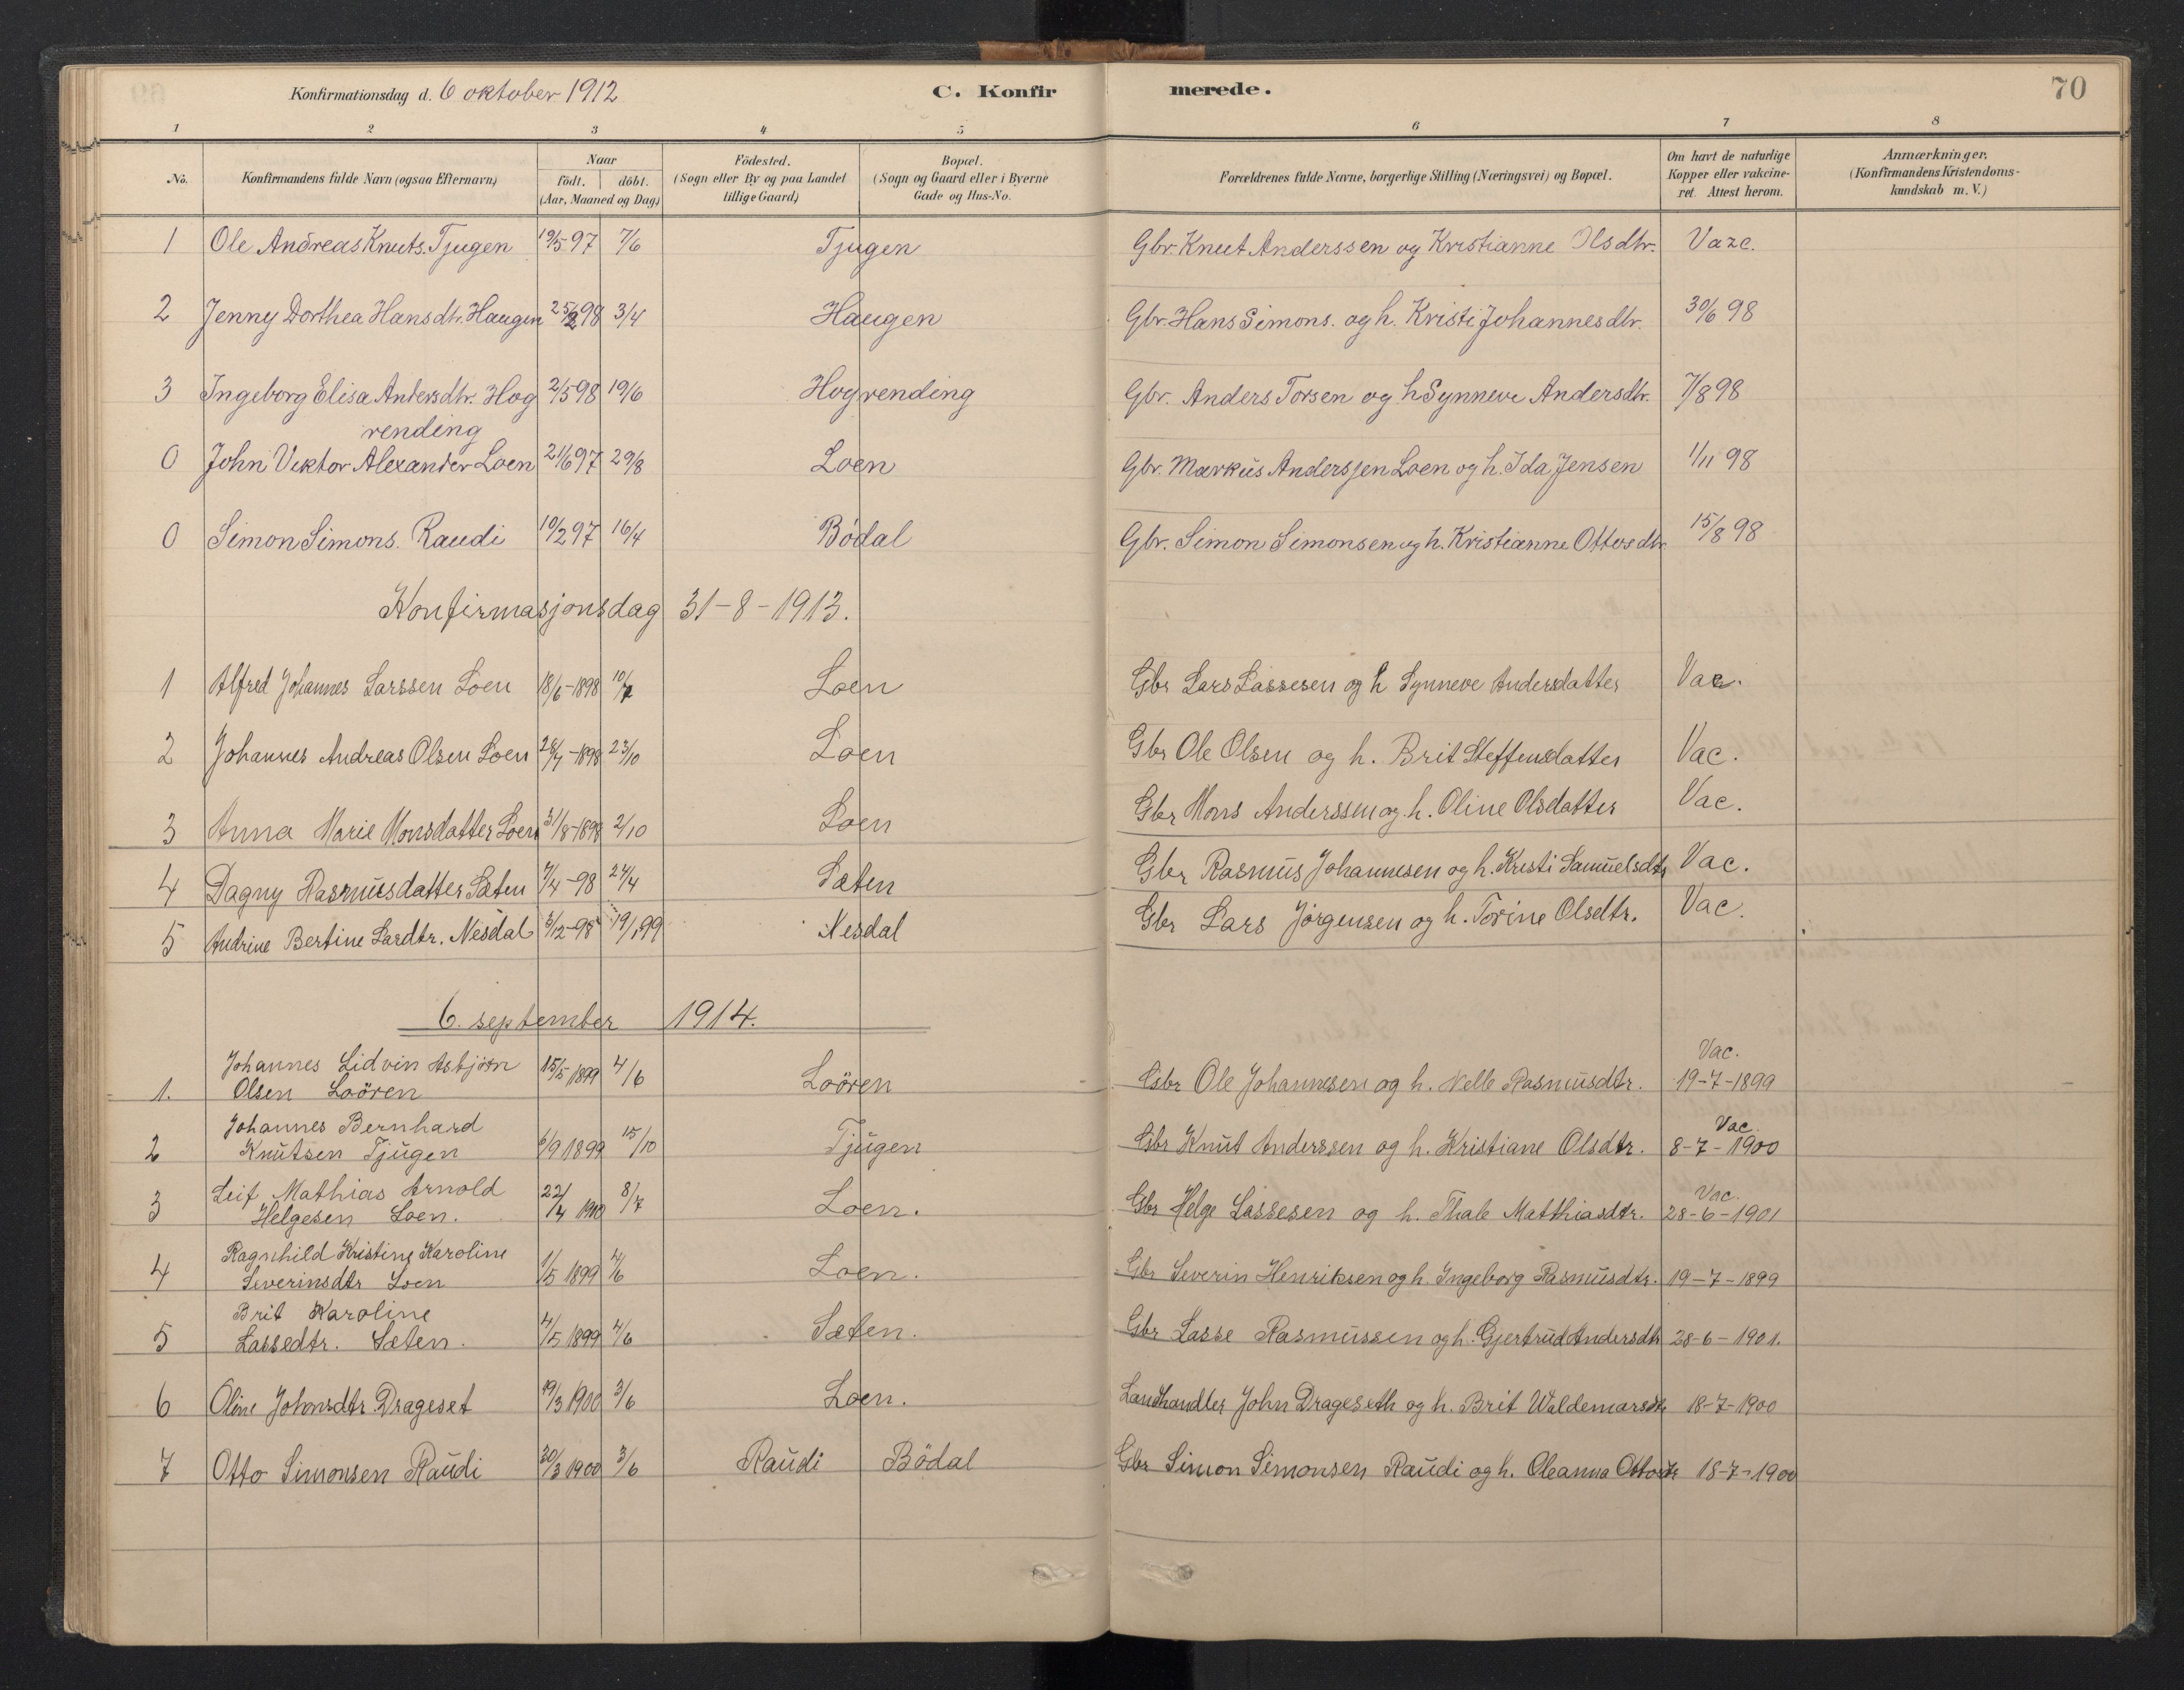 Konfirmationsdag d. 6 oktober 1912 C. Konfirmerede. 70
1 2 3 4 5 6 7 8
No. Konfirmandens fulde Navn (ogsaa Efternavn) Naar födt. döbt. (Aar, Maaned og Dag) Födested. (Sogn eller By og paa Landet tillige Gaard) Bopæl. (Sogn og Gaard eller i Byerne Gade og Hus-No. Forældrenes fulde Navne, borgerlige Stilling (Næringsvei) og Bopæl. Om havt de naturlige Kopper eller vakcineret. Attest herom. Anmærkninger. (Konfirmandens Kristendomskundskab m. V.)
1 Ole Andreas Knuts. Tjugen 19/5 97 7/6 Tjugen Gbr. Knut Anderssen og Kristianne Olsdtr. Vazc.
2 Jenny Dorthea Hansdtr. Haugen 25/2 98 3/4 Haugen Gbr. Hans Simons. og h. Kristi Johannesdtr. 30/6 98
3 Ingeborg Elisa Andersdtr. Hog 2/5 98 19/6 Hogrending Gbr. Anders Torsen og h Synneve Andersdtr. 7/8 98
rending
0 John Viktor Alexander Loen 21/6 97 29/8 Loen Gbr. Markus Anderssen Loen og h. Ida Jensen 1/11 98
0 Simon Simons. Raudi 10/2 97 16/4 Bödal Gbr. Simon Simonsen og h. Kristianne Ottosdtr 15/8 98
Konfirmasjonsdag 31-8-1913.
1 Alfred Johannes Larssen Loen 18/6-1898 10/7 Loen Gbr Lars Lassesen og h Synneve Andersdatter Vac.
2 Johannes Andreas Olsen Loen 28/7-1898 23/10 Loen Gbr Ole Olsen og h. Brit Steffensdatter Vac.
3 Anna Marie Monsdatter Loen 31/8-1898 2/10 Loen Gbr Mons Anderssen og h. Oline Olsdatter Vac.
4 Dagny Rasmusdatter Sæten 7/4-98 24/4 Sæten Gbr Rasmus Johannesen og h. Kristi Samuelsdtr Vac.
5 Andrine Bertine Larsdtr. Nesdal 3/12-98 19/1 99 Nesdal Gbr Lars Jörgensen og h. Torine Olsdtr. Vac.
6. september 1914.
Johannes Lidvin Asbjörn 15/5 1899 4/6 Vac.
1. Olsen Loören Loören Gbr Ole Johannesen og h. Nelle Rasmusdtr. 19-7-1899
Johannes Bernhard Vac.
2 Knutsen Tjugen 6/9 1899 15/10 Tjugen Gbr Knut Anderssen og h. Kristiane Olsdtr. 8-7-1900
Leif Mathias Arnold Vac.
3 Helgesen Loen. 22/4 1900 8/7 Loen. Gbr Helge Lassesen og h. Thale Matthiasdtr. 28-6-1901
Ragnhild Kristine Karoline
4 Severinsdtr Loen 1/5 1899 4/6 Loen. Gbr Severin Henriksen og h. Ingeborg Rasmusdtr. 19-7-1899
Brit Karoline
5 Lassedtr. Sæten. 4/5 1899 4/6 Sæten. Gbr Lasse Rasmussen og h. Gjertrud Andersdtr 28-6-1901.
6 Oline Johnsdtr Drageset 19/3 1900 3/6 Loen. Landhandler John Drageseth og h. Brit Waldemarsdtr 18-7-1900
7 Otto Simonsen Raudi 30/3 1900 3/6 Raudi Bödal Gbr Simon Simonsen Raudi og h. Oleanna Ottosdtr 18-7-1900